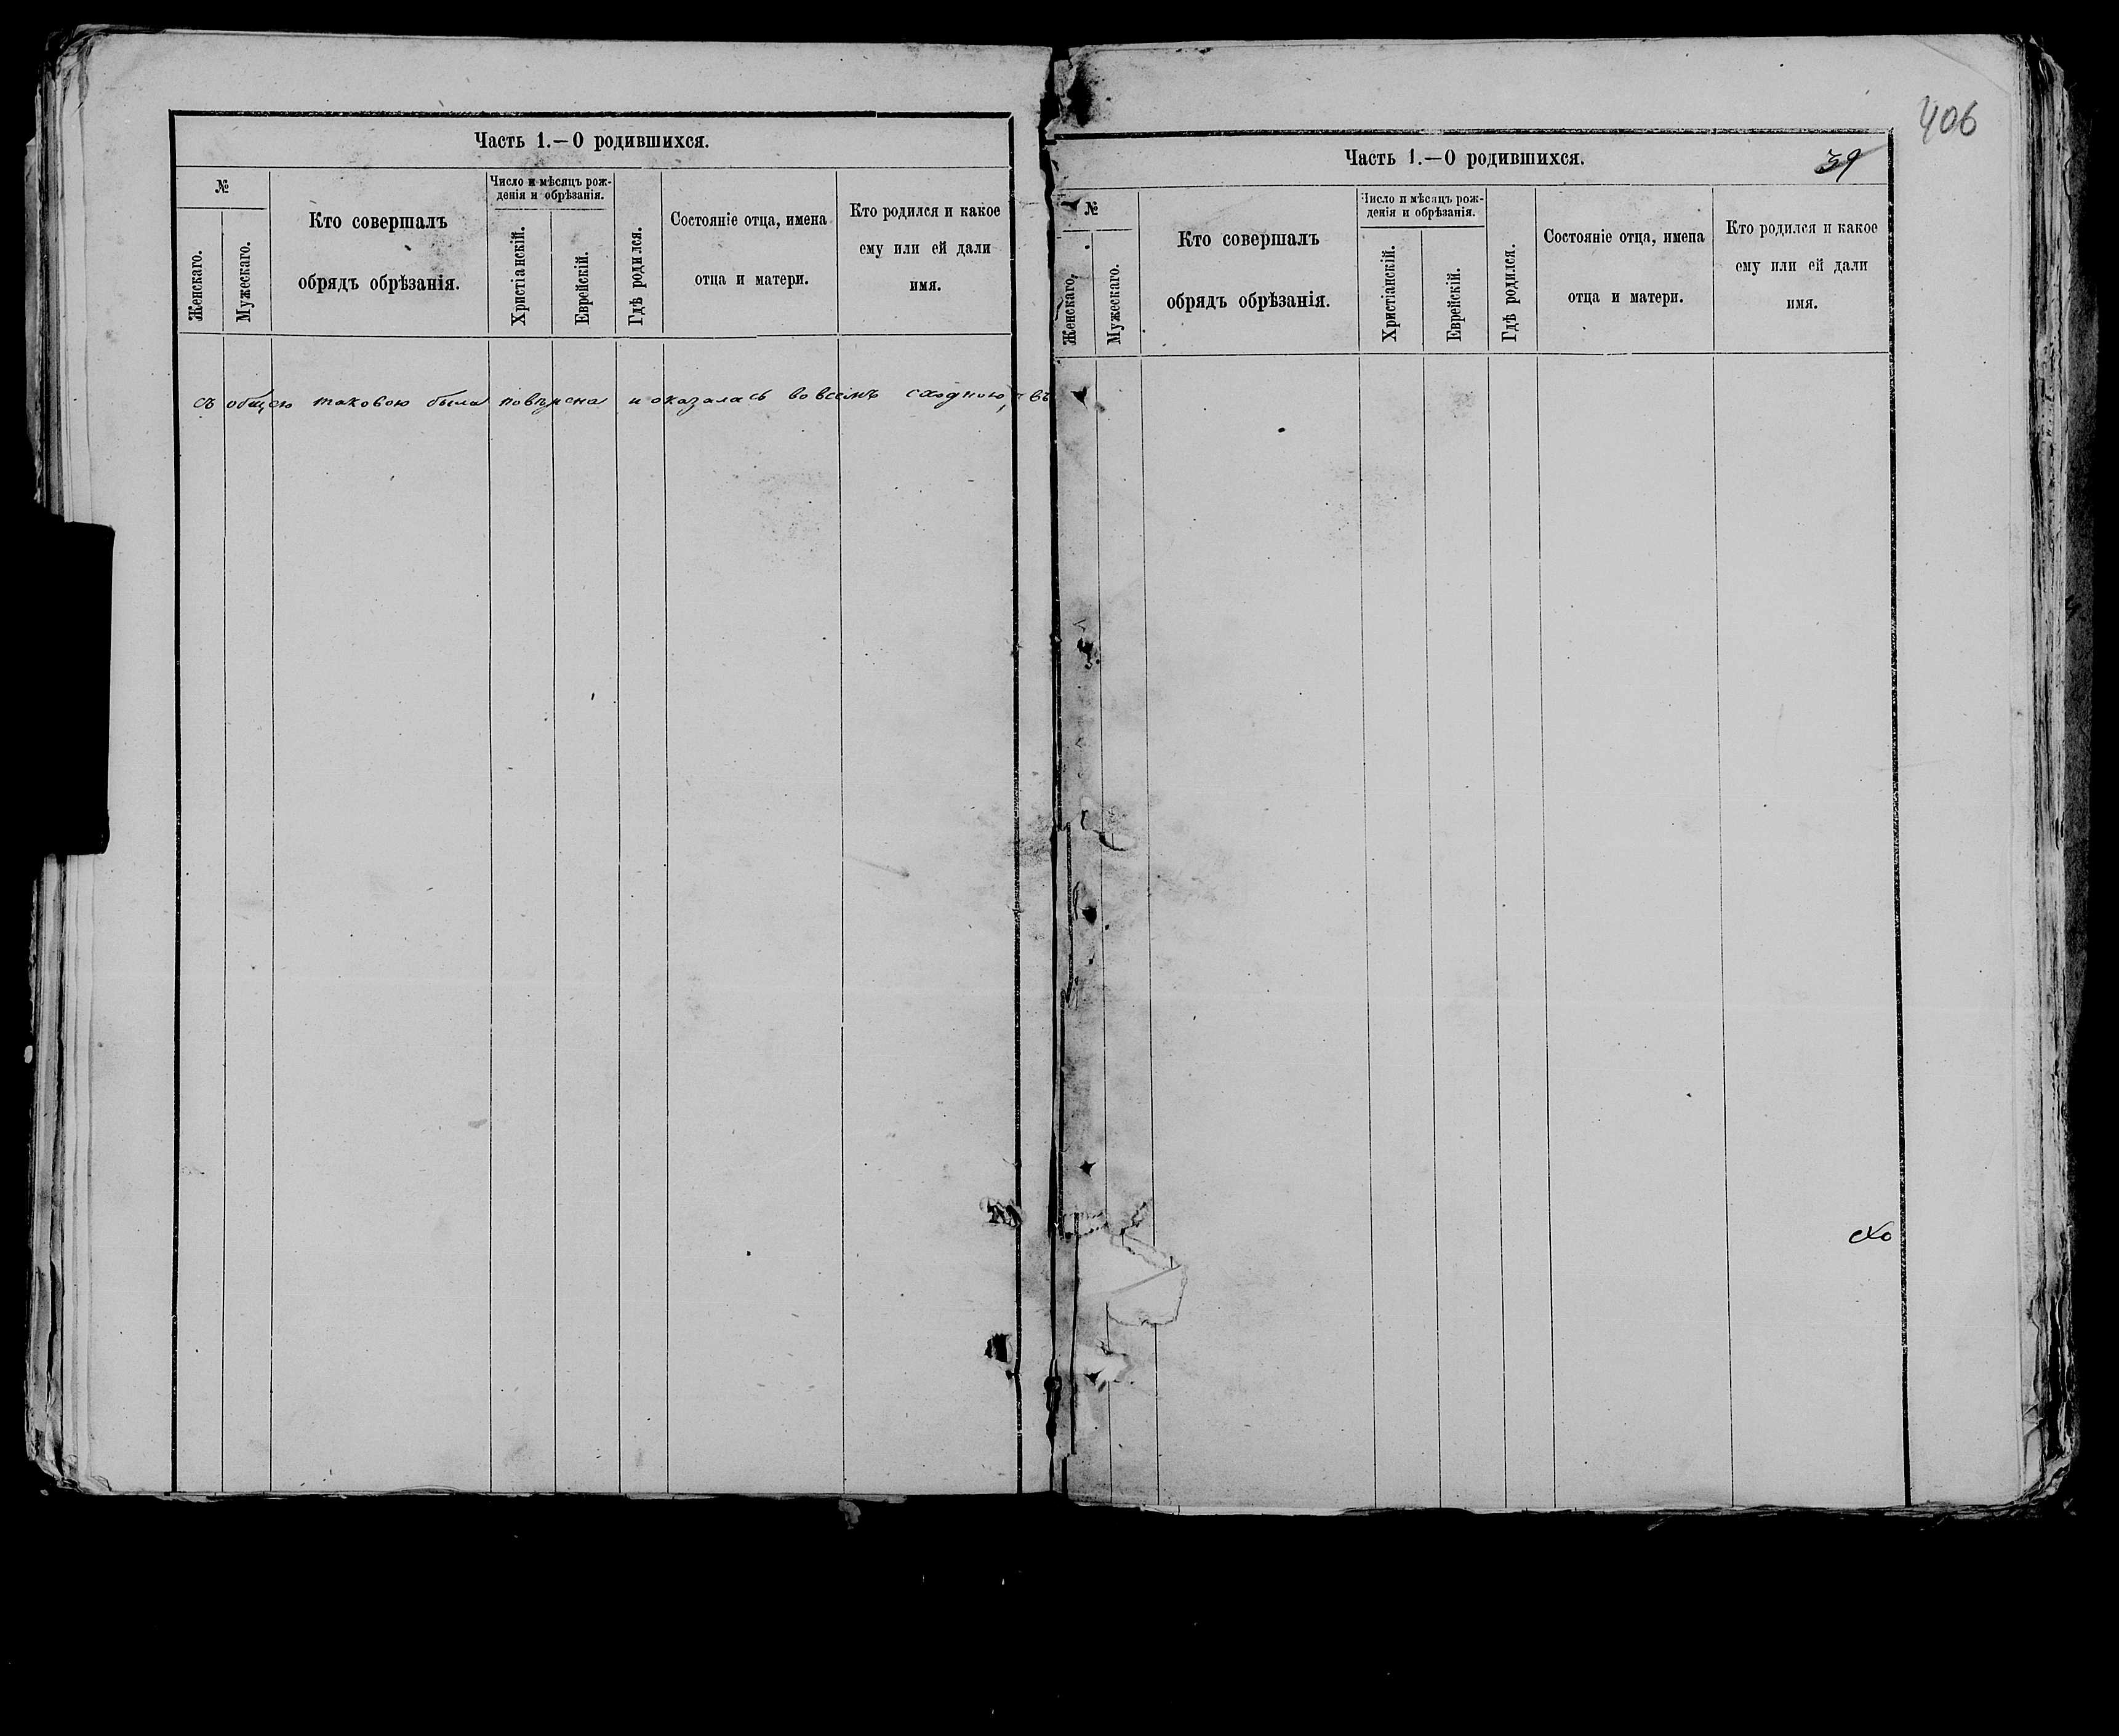 Часть 1.—О родившихся.
№
Женскаго.
Мужескаго.
Кто совершалъ
обрядъ обрѣзанія.
Число и мѣсяцъ рож-
денія и обрѣзанія.
Христіанскій.
Еврейскій.
Гдѣ родился.
Состояніе отца, имена
отца и матери.
Кто родился и какое
ему или ей дали
имя.
съ общею таковою была повѣрена и оказалась во всемъ сходною, въ
406
Часть 1.—О родившихся.
39
№
Женскаго.
Мужескаго.
Кто совершалъ
обрядъ обрѣзанія.
Число и мѣсяцъ рож-
денія и обрѣзанія.
Христіанскій.
Еврейскій.
Гдѣ родился.
Состояніе отца, имена
отца и матери.
Кто родился и какое
ему или ей дали
имя.